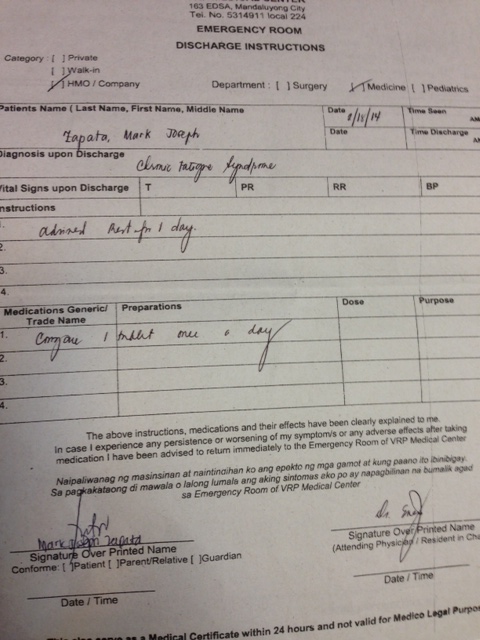 163 EDSA, Mandaluyong City
Tel. No. 5314911 local 224
EMERGENCY ROOM
DISCHARGE INSTRUCTIONS
Category : [ ] Private
[ ] Walk-in
[ ] HMO / Company
Department : [ ] Surgery [ ] Medicine [ ] Pediatrics
Patients Name ( Last Name, First Name, Middle Name
Date 8/15/14
Time Seen
Zapata, Mark Joseph
Date
Time Discharge
Diagnosis upon Discharge
Chronic Fatigue Syndrome
Vital Signs upon Discharge T PR RR BP
Instructions
1. advised Rest for 1 day.
2.
3.
4.
Medications Generic/ Trade Name Preparations Dose Purpose
1. 1 tablet once a day
2.
3.
4.
The above instructions, medications and their effects have been clearly explained to me.
In case I experience any persistence or worsening of my symptom/s or any adverse effects after taking
medication I have been advised to return immediately to the Emergency Room of VRP Medical Center
Naipaliwanag ng masinsinan at naintindihan ko ang epekto ng mga gamot at kung paano ito ibinibigay.
Sa pagkakataong di mawala o lalong lumala ang aking sintomas eko po ay napagbilinan na bumalik agad
sa Emergency Room of VRP Medical Center
Mark Joseph Zapata
Signature Over Printed Name
Conforme: [ ]Patient [ ]Parent/Relative [ ]Guardian
Date / Time
Dr.
Signature Over Printed Name
(Attending Physician / Resident in Cha
Date / Time
This also serve as a Medical Certificate within 24 hours and not valid for Medico Legal Purpo